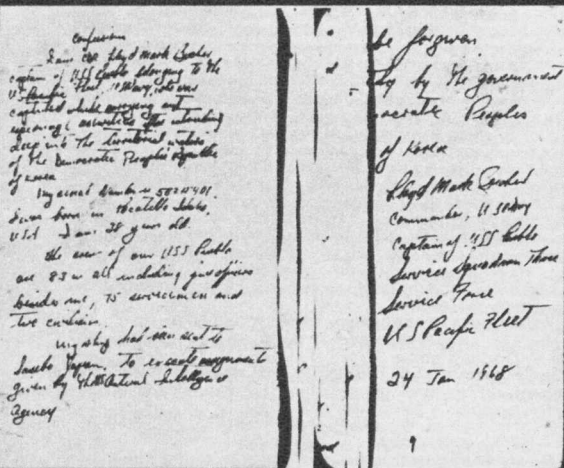 Confession
I am CDR Lloyd Mark Bucher
captain of USS Pueblo belonging to the
US Pacific Fleet, US Navy, who was
captured while carrying out
espionage activities after intruding
deep into the territorial waters
of the Democratic Peoples Republic
of Korea
My serial number is
I was born in Pocatello Idaho,
USA I am 38 years old.
The crew of our USS Pueblo
are 83 in all including officers
besides me, 75 servicemen and
two civilians
My ship had been sent to
Sasebo Japan, to execute assignments
given by the Intelligence
Agency
be forgiven
by the government
Peoples
of Korea
Lloyd Mark Bucher
Commander, USNavy
Captain of USS Pueblo
Service Squadron Three
Service Force
US Pacific Fleet
24 Jan 1968